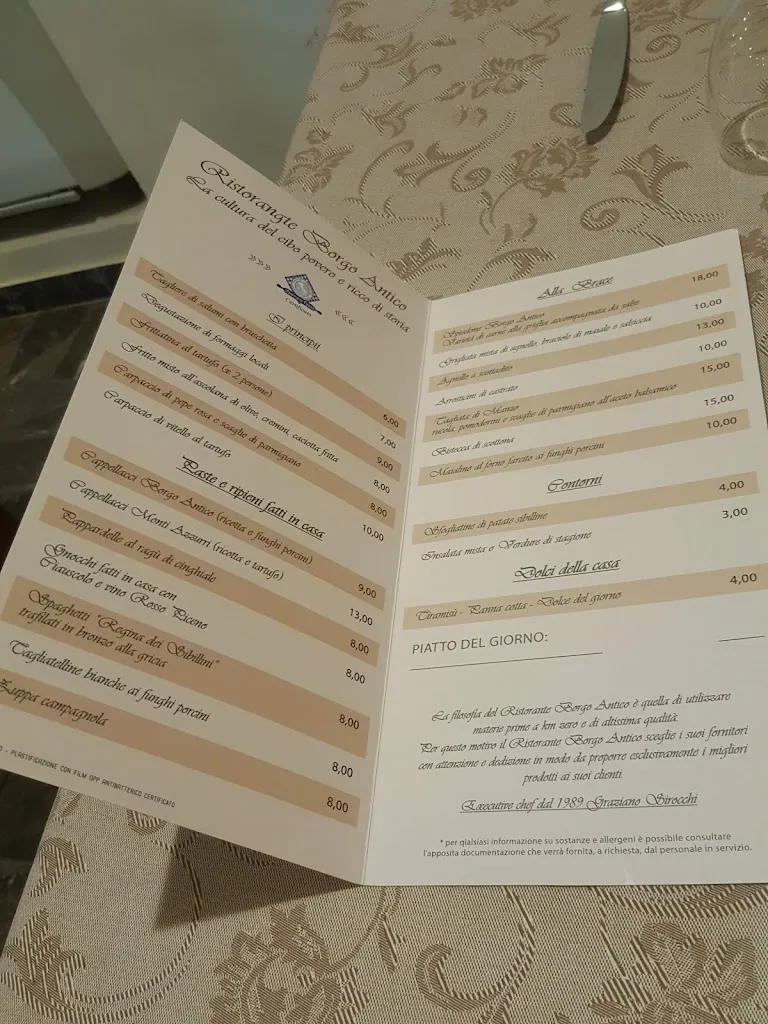 Ristorangte Borgo Antico
La cultura del cibo povero e ricco di storia
»»»
«««
Gli principii
Tagliere di salumi con bruschetta 6,00
Degustazione di formaggi locali 7,00
Frittatina al tartufo (x 2 persone) 9,00
Fritto misto all'ascolana di olive, cremini, caciotta fritta 8,00
Carpaccio di pepe rosa e scaglie di parmigiano 8,00
Carpaccio di vitello al tartufo 10,00
Paste e ripieni fatti in casa
Cappellacci Borgo Antico (ricotta e funghi porcini) 9,00
Cappellacci Monti Azzurri (ricotta e tartufo) 13,00
Pappardelle al ragù di cinghiale 8,00
Gnocchi fatti in casa con
Ciauscolo e vino Rosso Piceno 8,00
Spaghetti "Regina dei Sibillini"
trafilati in bronzo alla gricia 8,00
Tagliatelline bianche ai funghi porcini 8,00
Zuppa campagnola 8,00
- PLASTIFICAZIONE CON FILM OPP ANTIBATTERICO CERTIFICATO
Alla Brace
Spiedone Borgo Antico 18,00
Varietà di carne alla griglia accompagnata da salse
Grigliata mista di agnello, braciole di maiale e salsiccia 10,00
Agnello a scottadito 13,00
Arrosticini di castrato 10,00
Tagliata di Manzo 15,00
rucola, pomodorini e scaglie di parmigiano all'aceto balsamico
Bistecca di scottona 15,00
Maialino al forno farcito ai funghi porcini 10,00
Contorni
Sfogliatine di patate sibilline 4,00
Insalata mista o Verdure di stagione 3,00
Dolci della casa
Tiramisù - Panna cotta - Dolce del giorno 4,00
PIATTO DEL GIORNO:
La filosofia del Ristorante Borgo Antico è quella di utilizzare
materie prime a km zero e di altissima qualità.
Per questo motivo il Ristorante Borgo Antico sceglie i suoi fornitori
con attenzione e dedizione in modo da proporre esclusivamente i migliori
prodotti ai suoi clienti.
Executive chef dal 1989 Graziano Sirocchi
* per qialsiasi informazione su sostanze e allergeni è possibile consultare
l'apposita documentazione che verrà fornita, a richiesta, dal personale in servizio.